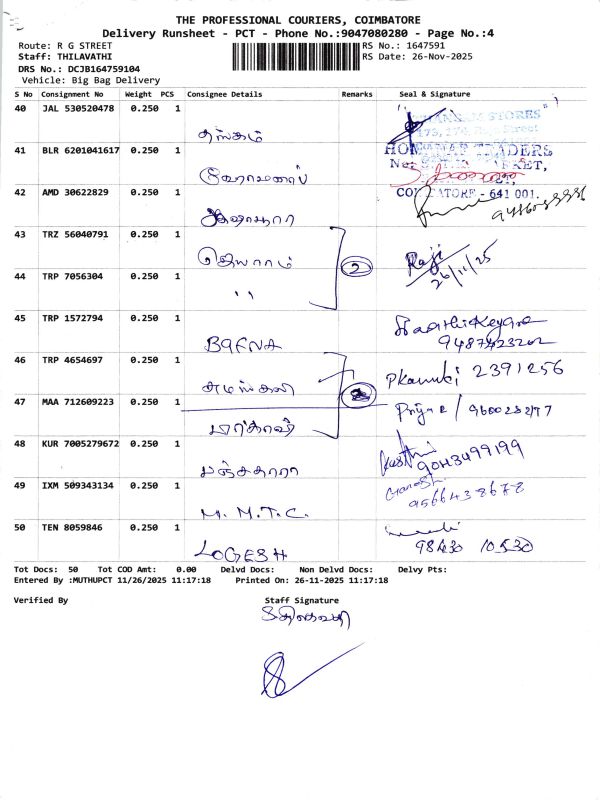 THE PROFESSIONAL COURIERS, COIMBATORE
Delivery Runsheet - PCT - Phone No.:9047080280 - Page No.:4
Route: R G STREET RS No.: 1647591
Staff: THILAVATHI RS Date: 26-Nov-2025
DRS No.: DCJB164759104
Vehicle: Big Bag Delivery
S No Consignment No Weight PCS Consignee Details Remarks Seal & Signature
40 JAL 530520478 0.250 1 STORES
தங்கம்
41 BLR 6201041617 0.250 1 TRADERS
42 AMD 30622829 0.250 1 COIMBATORE - 641 001.
43 TRZ 56040791 0.250 1
ஜெயராம் 2 Raji 26/11/25
44 TRP 7056304 0.250 1
,,
45 TRP 1572794 0.250 1
BAFNA
46 TRP 4654697 0.250 1 2391256
47 MAA 712609223 0.250 1 Priya
48 KUR 7005279672 0.250 1
9043499199
49 IXM 509343134 0.250 1 Ganesh
M. M. T. C. 9566438678
50 TEN 8059846 0.250 1
LOGESH 98430 10530
Tot Docs: 50 Tot COD Amt: 0.00 Delvd Docs: Non Delvd Docs: Delvy Pts:
Entered By :MUTHUPCT 11/26/2025 11:17:18 Printed On: 26-11-2025 11:17:18
Verified By Staff Signature